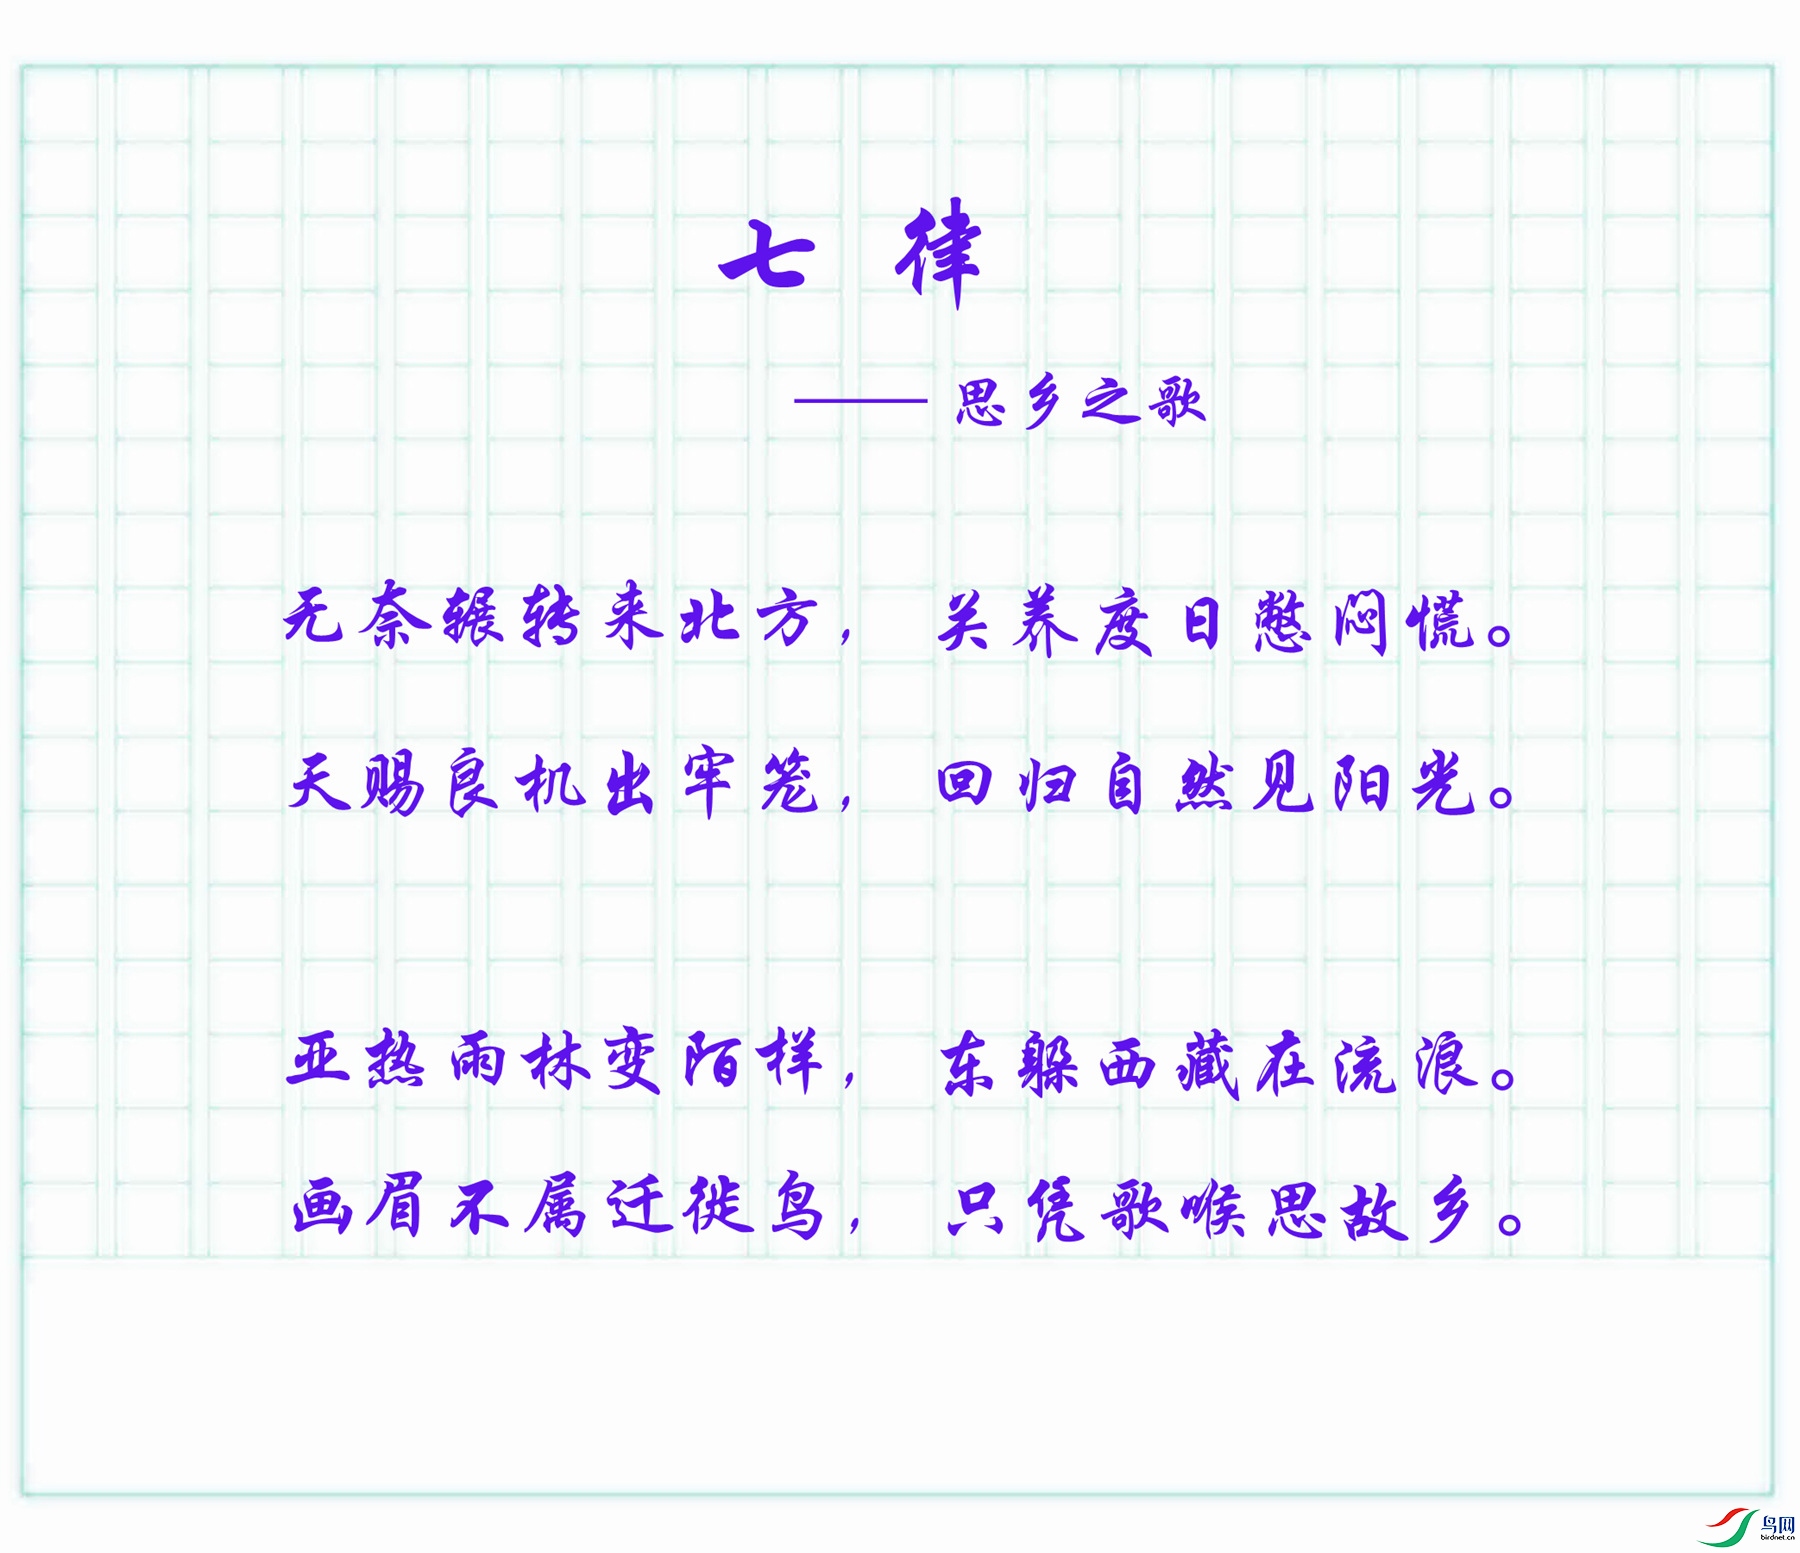 七 律
—— 思乡之歌
无奈辗转来北方， 关养度日憋闷慌。
天赐良机出牢笼， 回归自然见阳光。
亚热雨林变陌样， 东躲西藏在流浪。
画眉不属迁徙鸟， 只凭歌喉思故乡。
鸟网
birdnet.cn